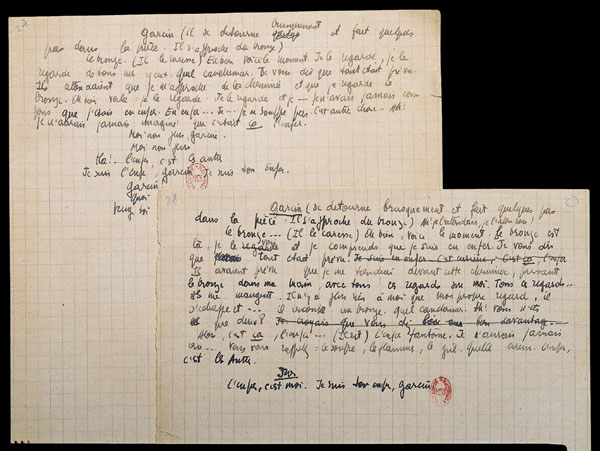 Garcin (il se détourne brusquement et fait quelques
pas dans la pièce. Il s'approche du bronze)
Le bronze. (Il le caresse) Eh bien voici le moment. Je le regarde, je le
regarde de tous mes yeux. Quel cauchemar. Je vous dis que tout était prévu.
Ils attendaient que je m'approche de la cheminée et que je regarde le
bronze. Eh bien voilà je le regarde. Je le regarde et je — je n'avais jamais
que j'étais en enfer. En enfer... Je... je ne souffre pas. C'est autre chose. Ah!
je n'aurais jamais imaginé que c'était ça l'enfer.
Moi non plus garcin.
Moi non plus
Ha!... l'enfer, c'est les autres
Je suis l'enfer, garcin. Je suis ton Enfer.
Garcin
quoi
28
Garcin (se détourne brusquement et fait quelques pas
dans la pièce. Il s'approche du bronze)
le bronze... (Il le caresse) Eh bien, voici le moment. le bronze est
là, je le regarde et je comprends que je suis en enfer. Je vous dis
que tout était prévu. Je suis en enfer. C'est ça, l'enfer
Ils avaient prévu que je me tiendrai devant cette cheminée, pressant
le bronze dans ma main avec tous ces regards sur moi. Tous ces regards...
me mangent. Il n'y a plus rien à moi que mon propre regard, il
s'échappe et... un bronze. Ah! vous n'êtes
que deux? Je croyais que vous bien davantage...
Alors c'est ça, l'enfer... l'enfer Je n'aurais jamais
cru... Vous vous rappelez: le soufre, les flammes, le gril. Quelle L'enfer,
c'est les Autres.
Ines
L'enfer, c'est moi. Je suis ton enfer, garcin